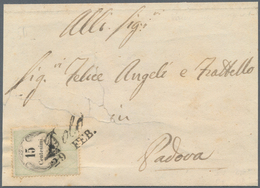 Alli Sig.ri
Sig.ri Felice Angeli e Fratello
Padova
15
29 FEB.